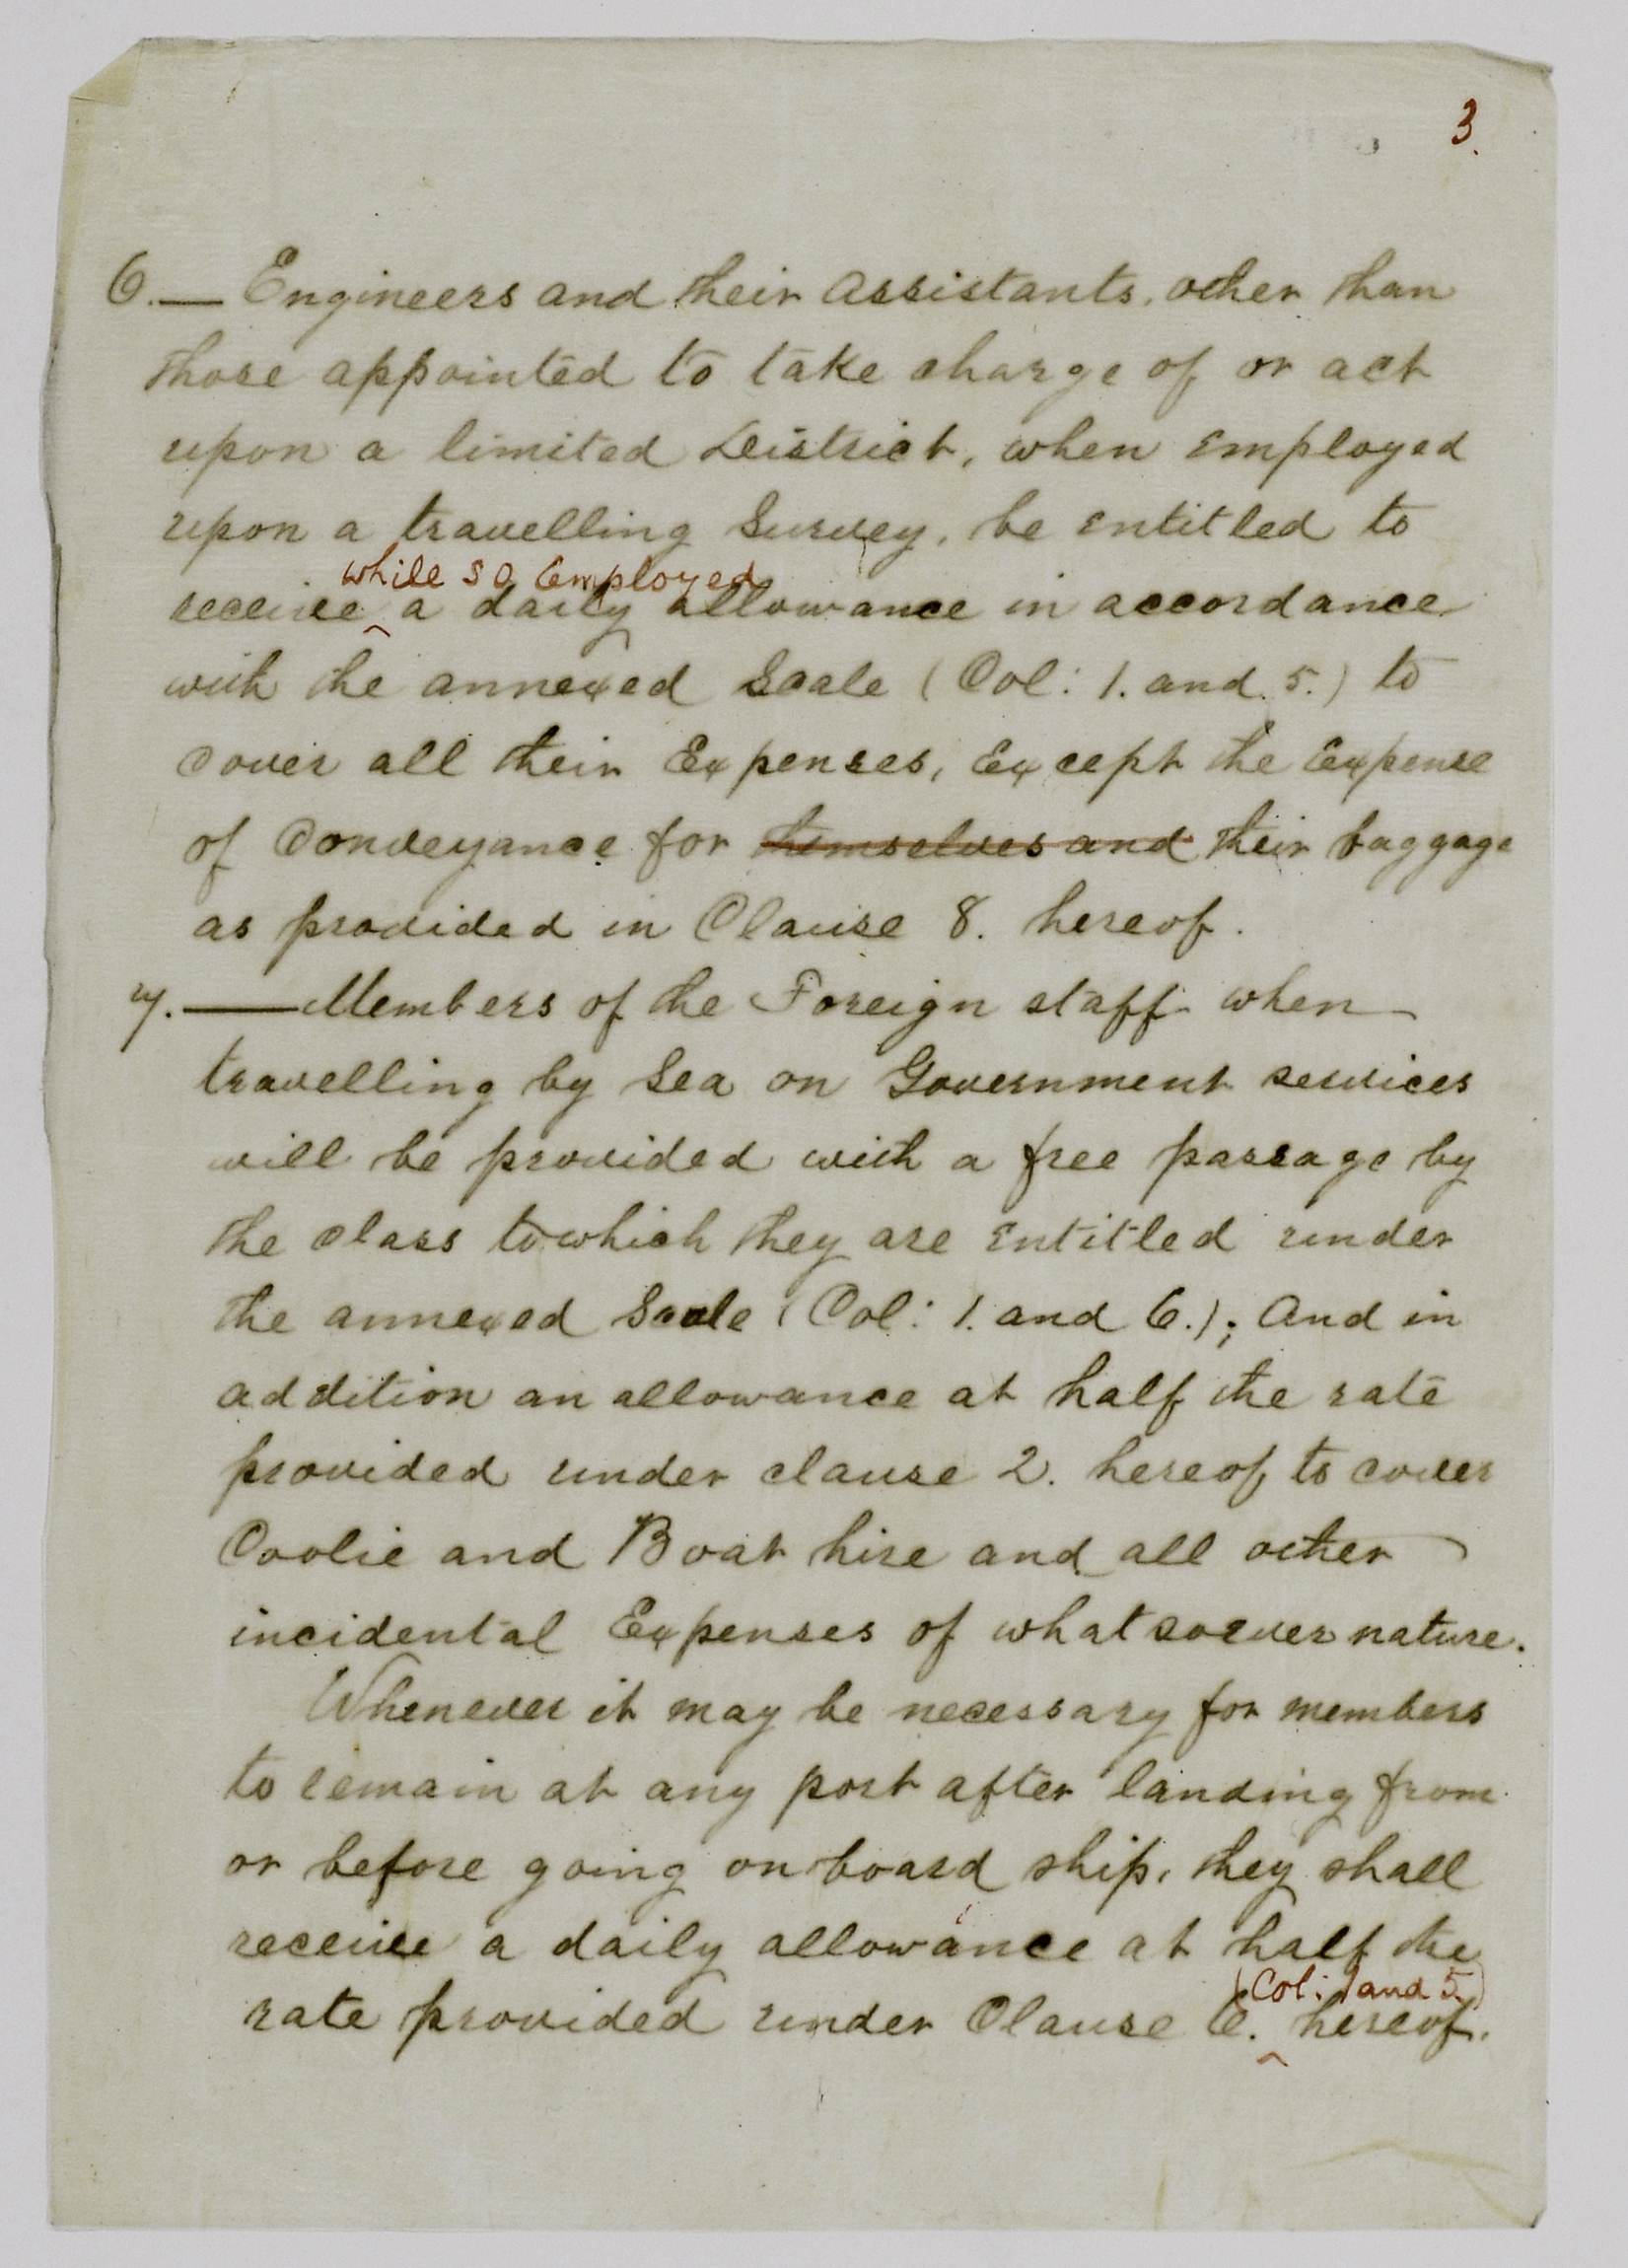 3.
6.— Engineers and their Assistants, other than
those appointed to take charge of or act
upon a limited District, when employed
upon a travelling Survey, be entitled to
while so employed
receive ‸ a daily allowance in accordance
with the annexed Scale (Col: 1. and 5.) to
cover all their Expenses, Except the Expense
of Conveyance for themselves and their baggage
as provided in Clause 8. hereof.
7.— Members of the Foreign staff when
travelling by Sea on Government services
will be provided with a free passage by
the class to which they are entitled under
the annexed Scale (Col: 1. and 6.); And in
addition an allowance at half the rate
provided under clause 2. hereof to cover
Coolie and Boat hire and all other
incidental Expenses of whatsoever nature.
Whenever it may be necessary for members
to remain at any port after landing from
or before going on board ship, they shall
receive a daily allowance at half the
(Col: 1 and 5.)
rate provided under Clause 6. ‸ hereof.